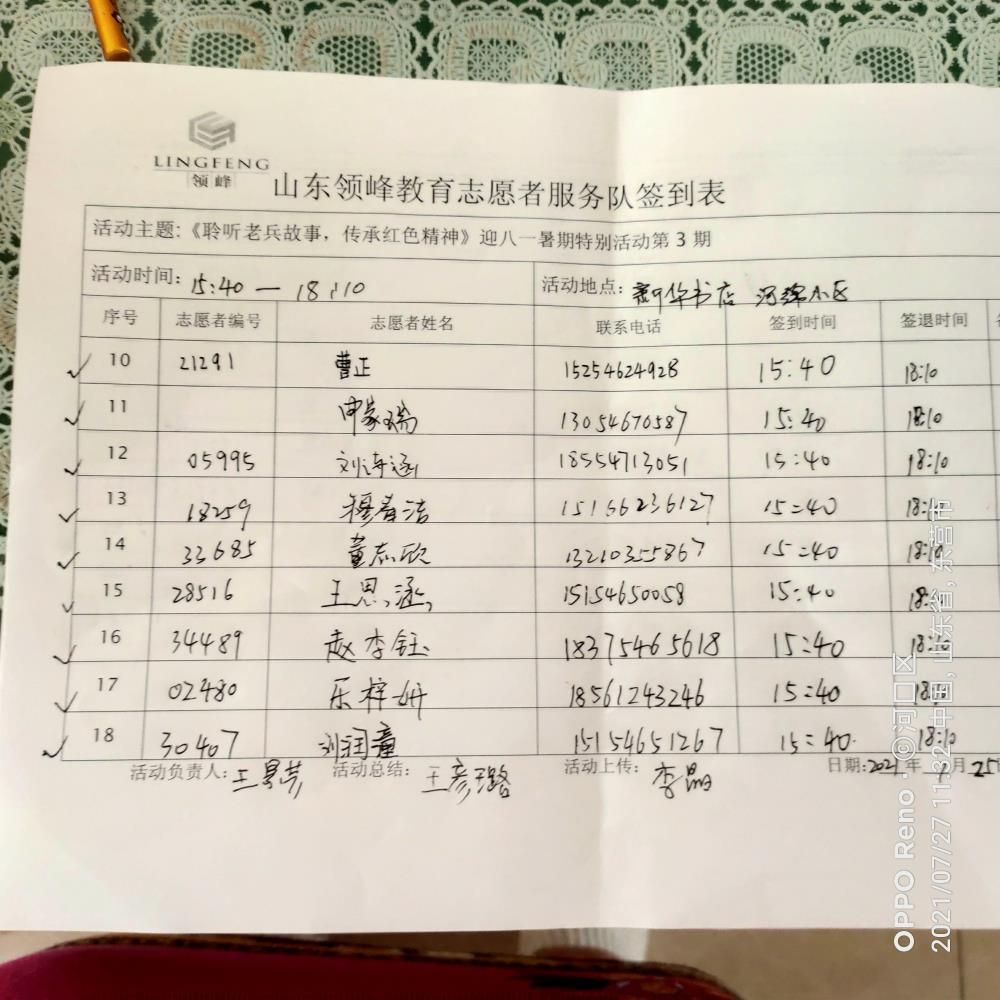 LINGFENG
领峰
山东领峰教育志愿者服务队签到表
活动主题:《聆听老兵故事，传承红色精神》迎八一暑期特别活动第3期
活动时间: 15:40 — 18:10 活动地点: 新华书店 河锦小区
序号 志愿者编号 志愿者姓名 联系电话 签到时间 签退时间
10 21291 曹正 15254624928 15:40 18:10
11 申家瑞 13054670587 15:40 18:10
12 05995 刘诗涵 18554713051 15:40 18:10
13 18259 穆春洁 15166236127 15:40 18:10
14 33685 董志欣 13210355867 15:40 18:10
15 28516 王思涵 15154650058 15:40 18:10
16 34489 赵李钰 18375465618 15:40 18:10
17 02480 乐梓妍 18561243246 15:40 18:10
18 30407 刘润童 15154651267 15:40 18:10
活动负责人: 活动总结: 王彦璐 活动上传: 李晶 日期: 2021年7月25
OPPO Reno · @河口区
2021/07/27 11:32 中国, 山东省, 东营市